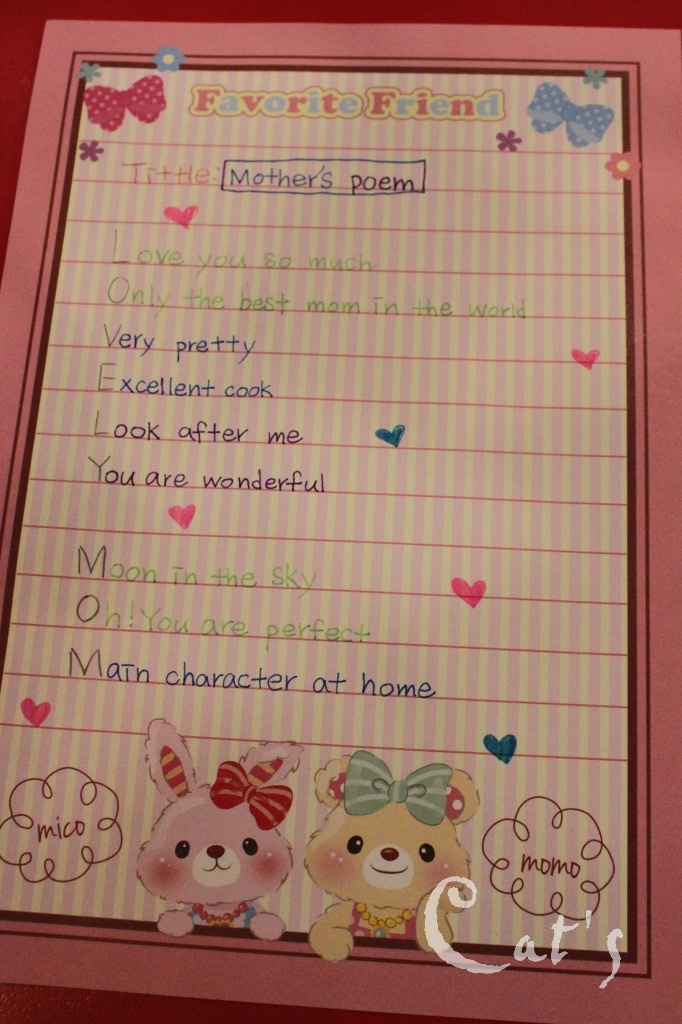 Favorite Friend
Tittle: Mother's poem
Love you so much
Only the best mom in the world
Very pretty
Excellent cook
Look after me
You are wonderful
Moon in the sky
Oh! You are perfect
Main character at home
mico
momo
Cat's